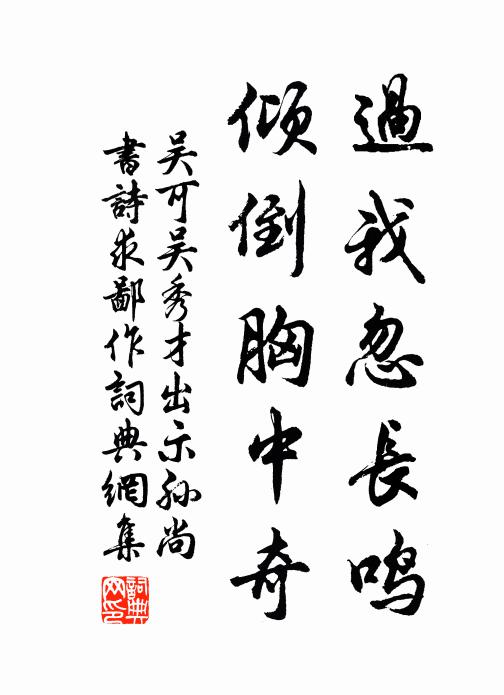 過我忽長鳴
傾倒胸中奇
吴可吴秀才出示孙尚
書詩求鄙作詞典網集